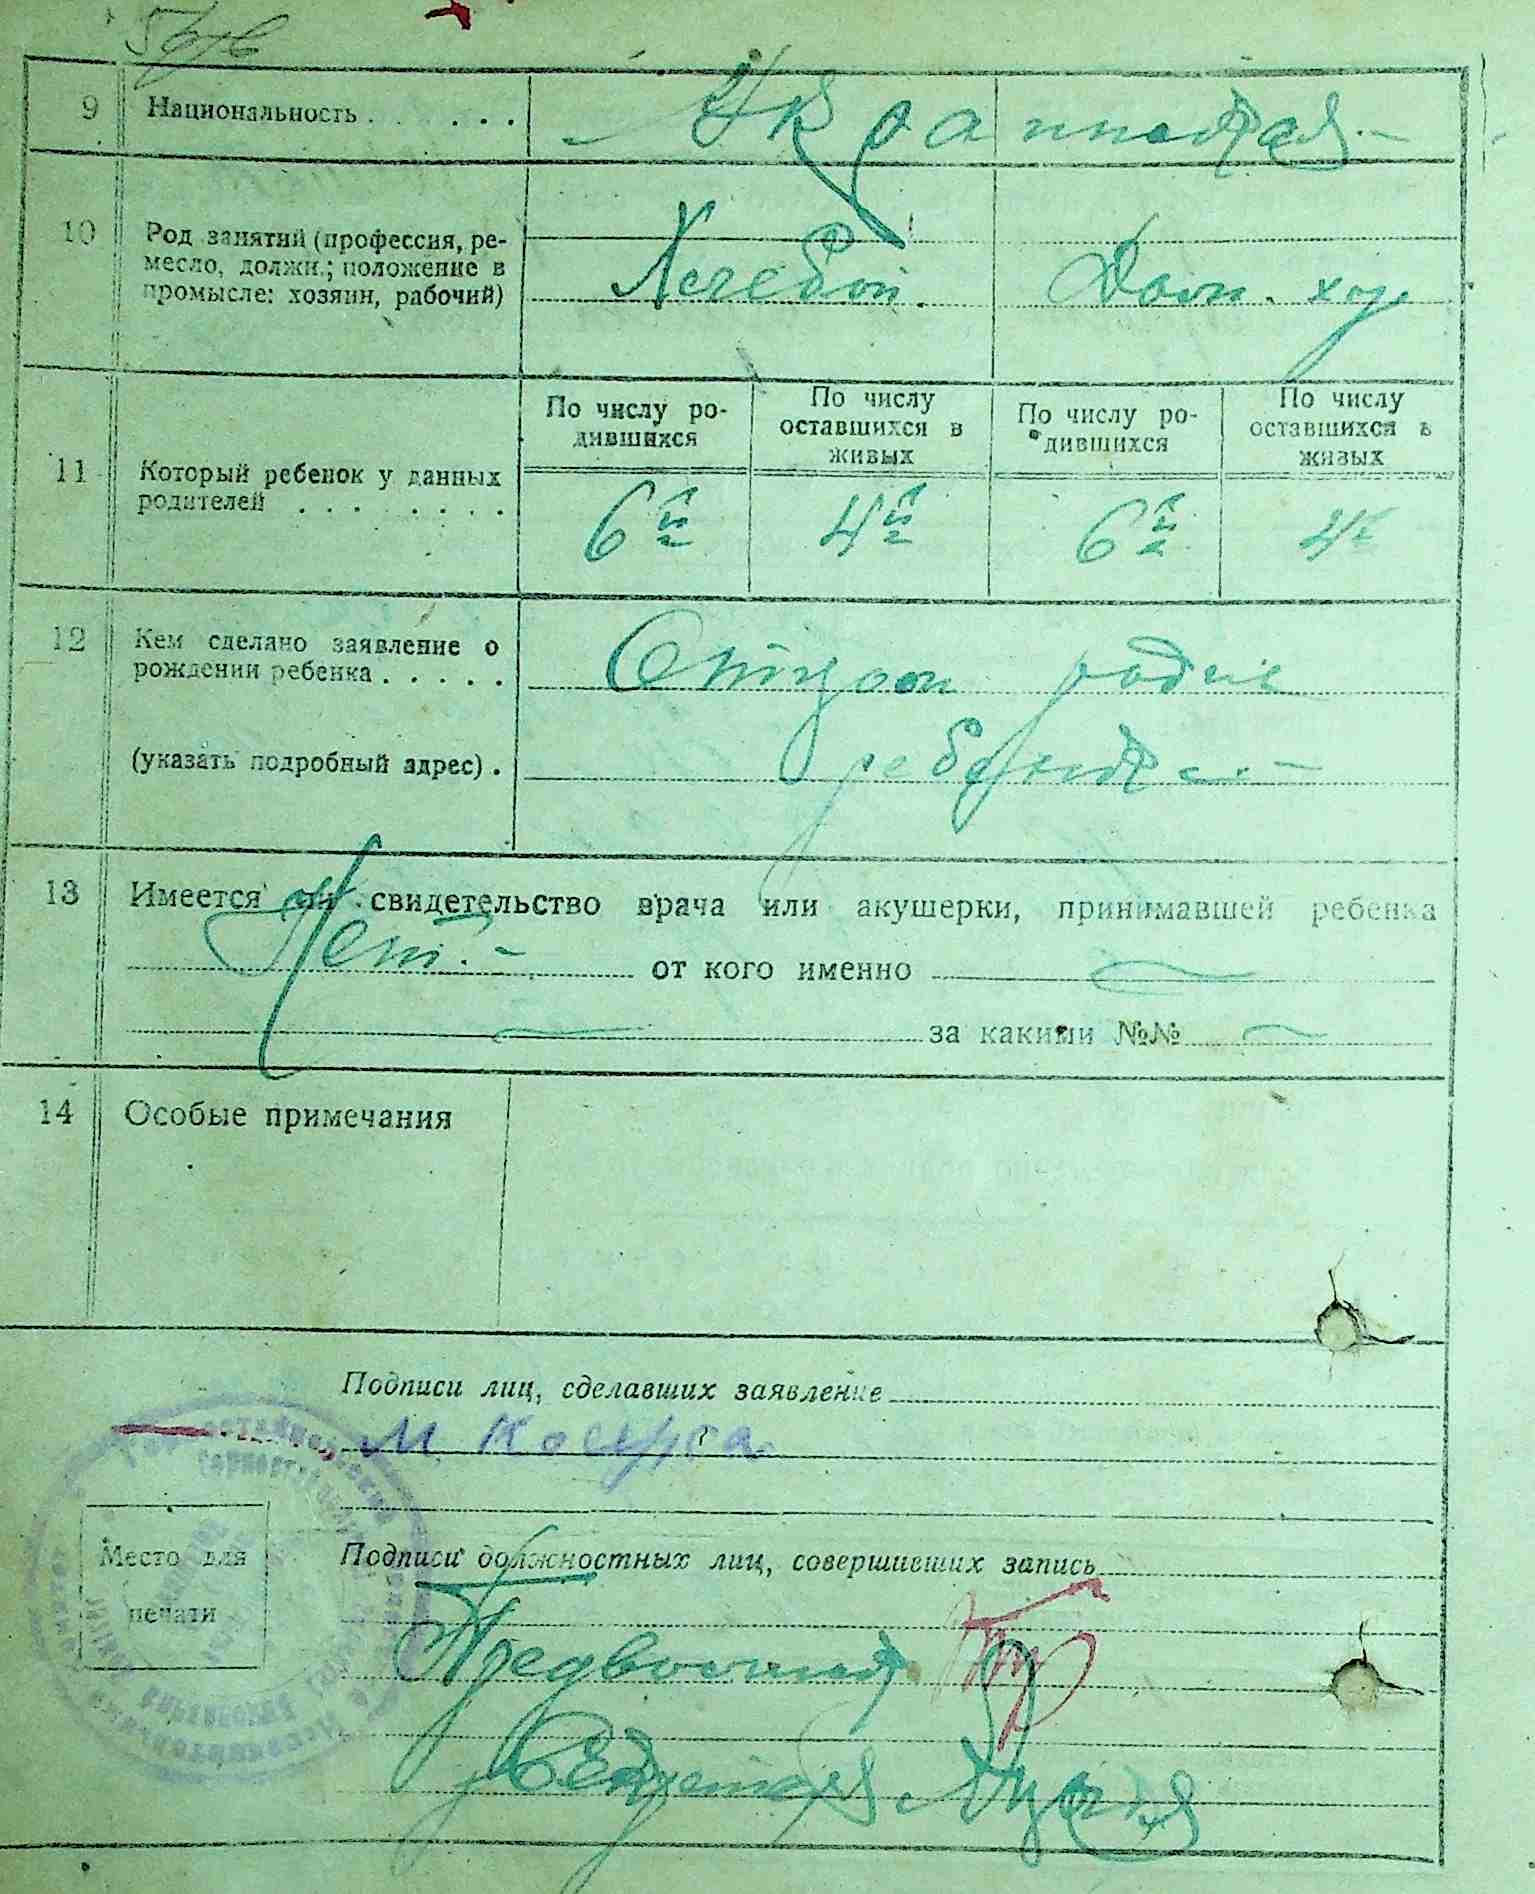 9 Национальность . . . . . .
Украинская
10 Род занятий (профессия, ре-
месло, должн.; положение в
промысле: хозяин, рабочий)
Хлебоп. Дом. хоз.
По числу ро-
дившихся
По числу
оставшихся в
живых
По числу ро-
дившихся
По числу
оставшихся в
живых
11 Который ребенок у данных
родителей . . . . . . . .
6й 4й 6й 4й
12 Кем сделано заявление о
рождении ребенка . . . . .
Отцом
ребенка
(указать подробный адрес) .
13 Имеется ли свидетельство врача или акушерки, принимавшей ребенка
Нет. от кого именно
за какими №№
14 Особые примечания
Подписи лиц, сделавших заявление
М
Место для
печати
Подписи должностных лиц, совершивших запись